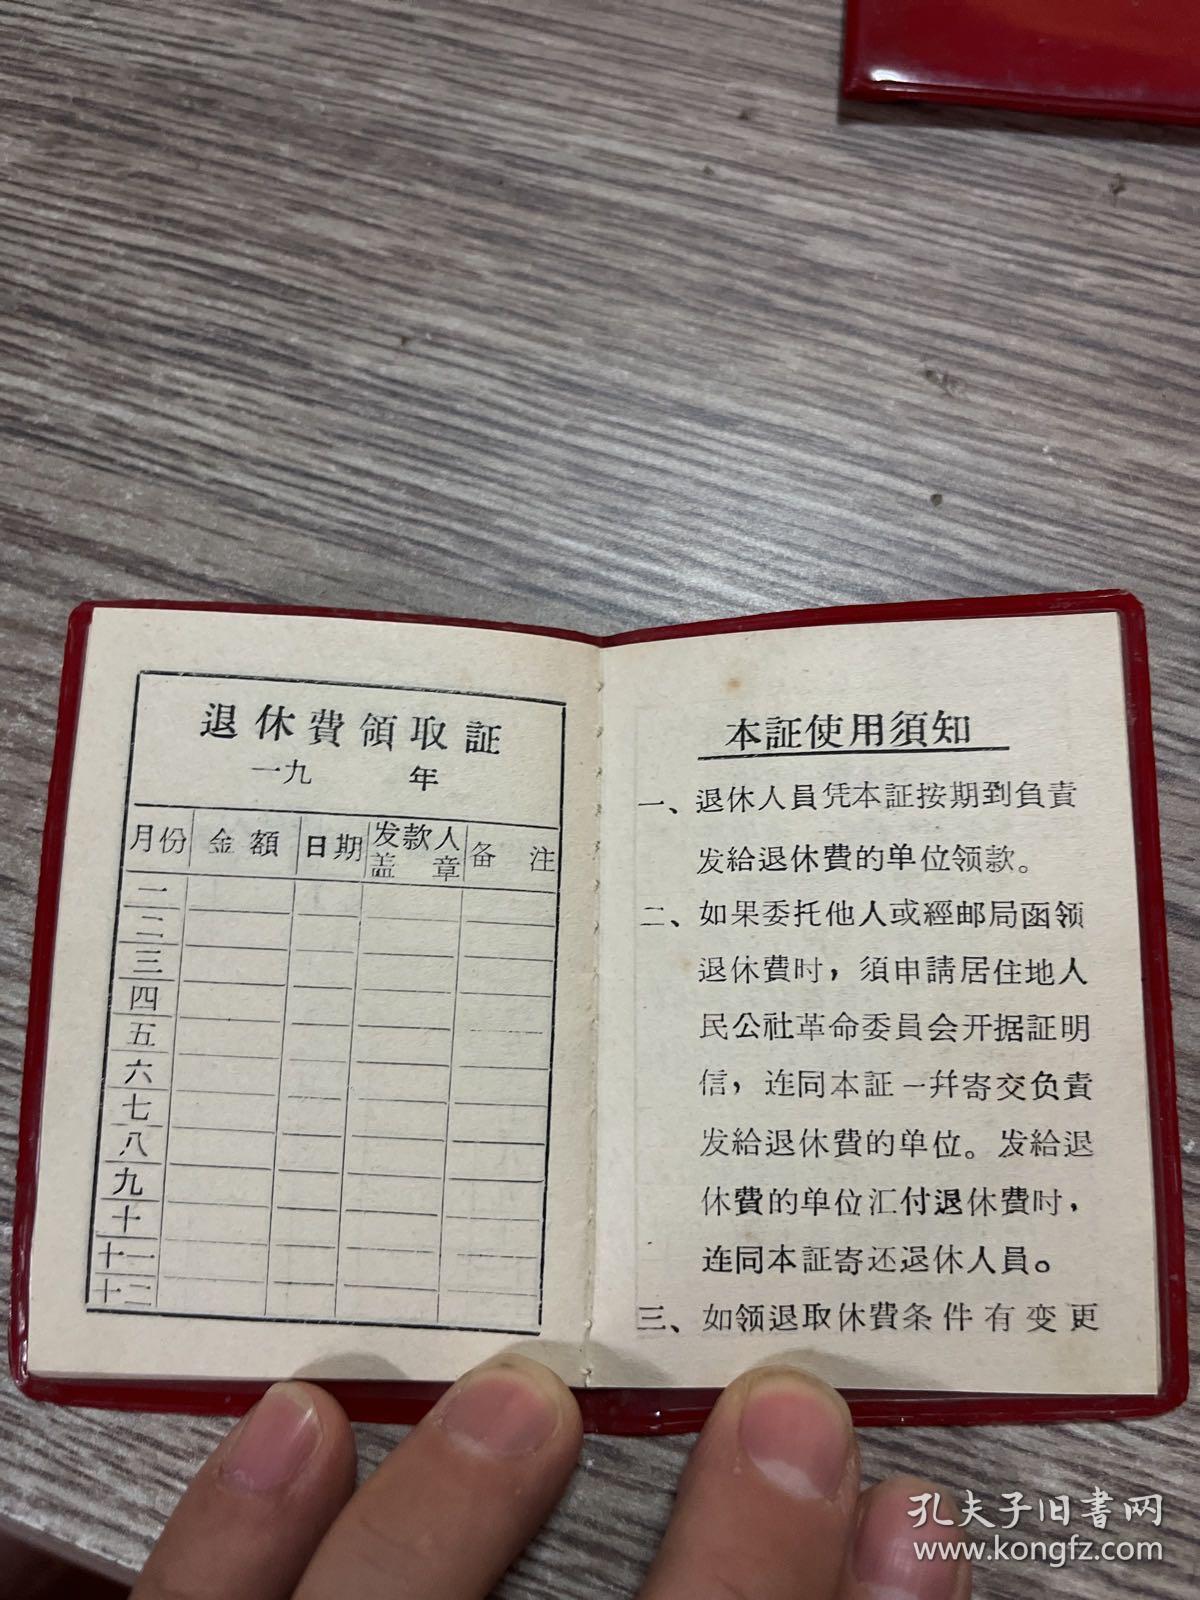 退休費領取証
一九 年
月份 金額 日期 发款人盖章 备注
一
二
三
四
五
六
七
八
九
十
十一
十二
本証使用須知
一、退休人員凭本証按期到負責
发給退休費的单位领款。
二、如果委托他人或經邮局函领
退休費时，須申請居住地人
民公社革命委員会开据証明
信，连同本証一幷寄交负責
发給退休費的单位。发給退
休費的单位汇付退休費时，
连同本証寄还退休人員。
三、如领退取休費条件有变更
孔夫子旧書网
www.kongfz.com